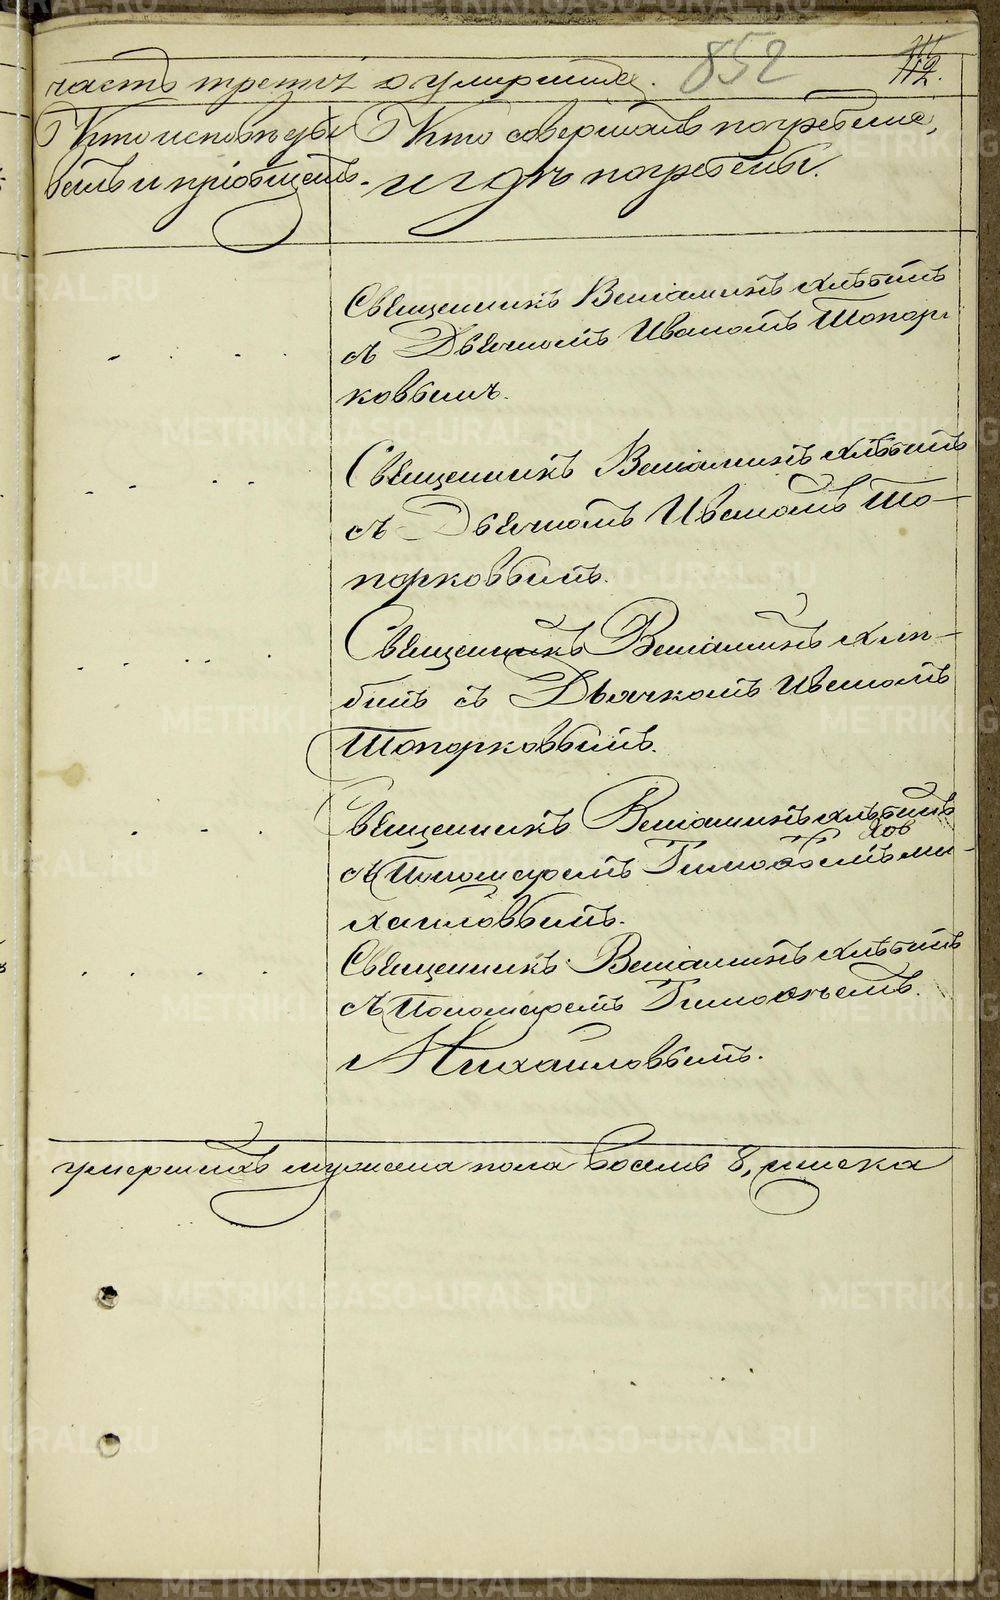 часть третія о умершихъ. 852 112.
Кто исповѣды- Кто совершалъ погребеніе,
валъ и пріобщалъ. и гдѣ погребены.
Священникъ Веніаминъ Хлѣбинъ
съ Дьячкомъ Иваномъ Топор-
ковымъ.
Священникъ Веніаминъ Хлѣбинъ
съ Дьячкомъ Иваномъ То-
порковымъ.
Священникъ Веніаминъ Хлѣ-
бинъ съ Дьячкомъ Иваномъ
Топорковымъ.
Священникъ Веніаминъ Хлѣбинъ
съ Пономаремъ Тимоѳеемъ Ми-
хайловымъ.
Священникъ Веніаминъ Хлѣбинъ
съ Пономаремъ Тимоѳеемъ
Михайловымъ.
умершихъ мужеска пола восемь 8,
METRIKI.GASO-URAL.RU